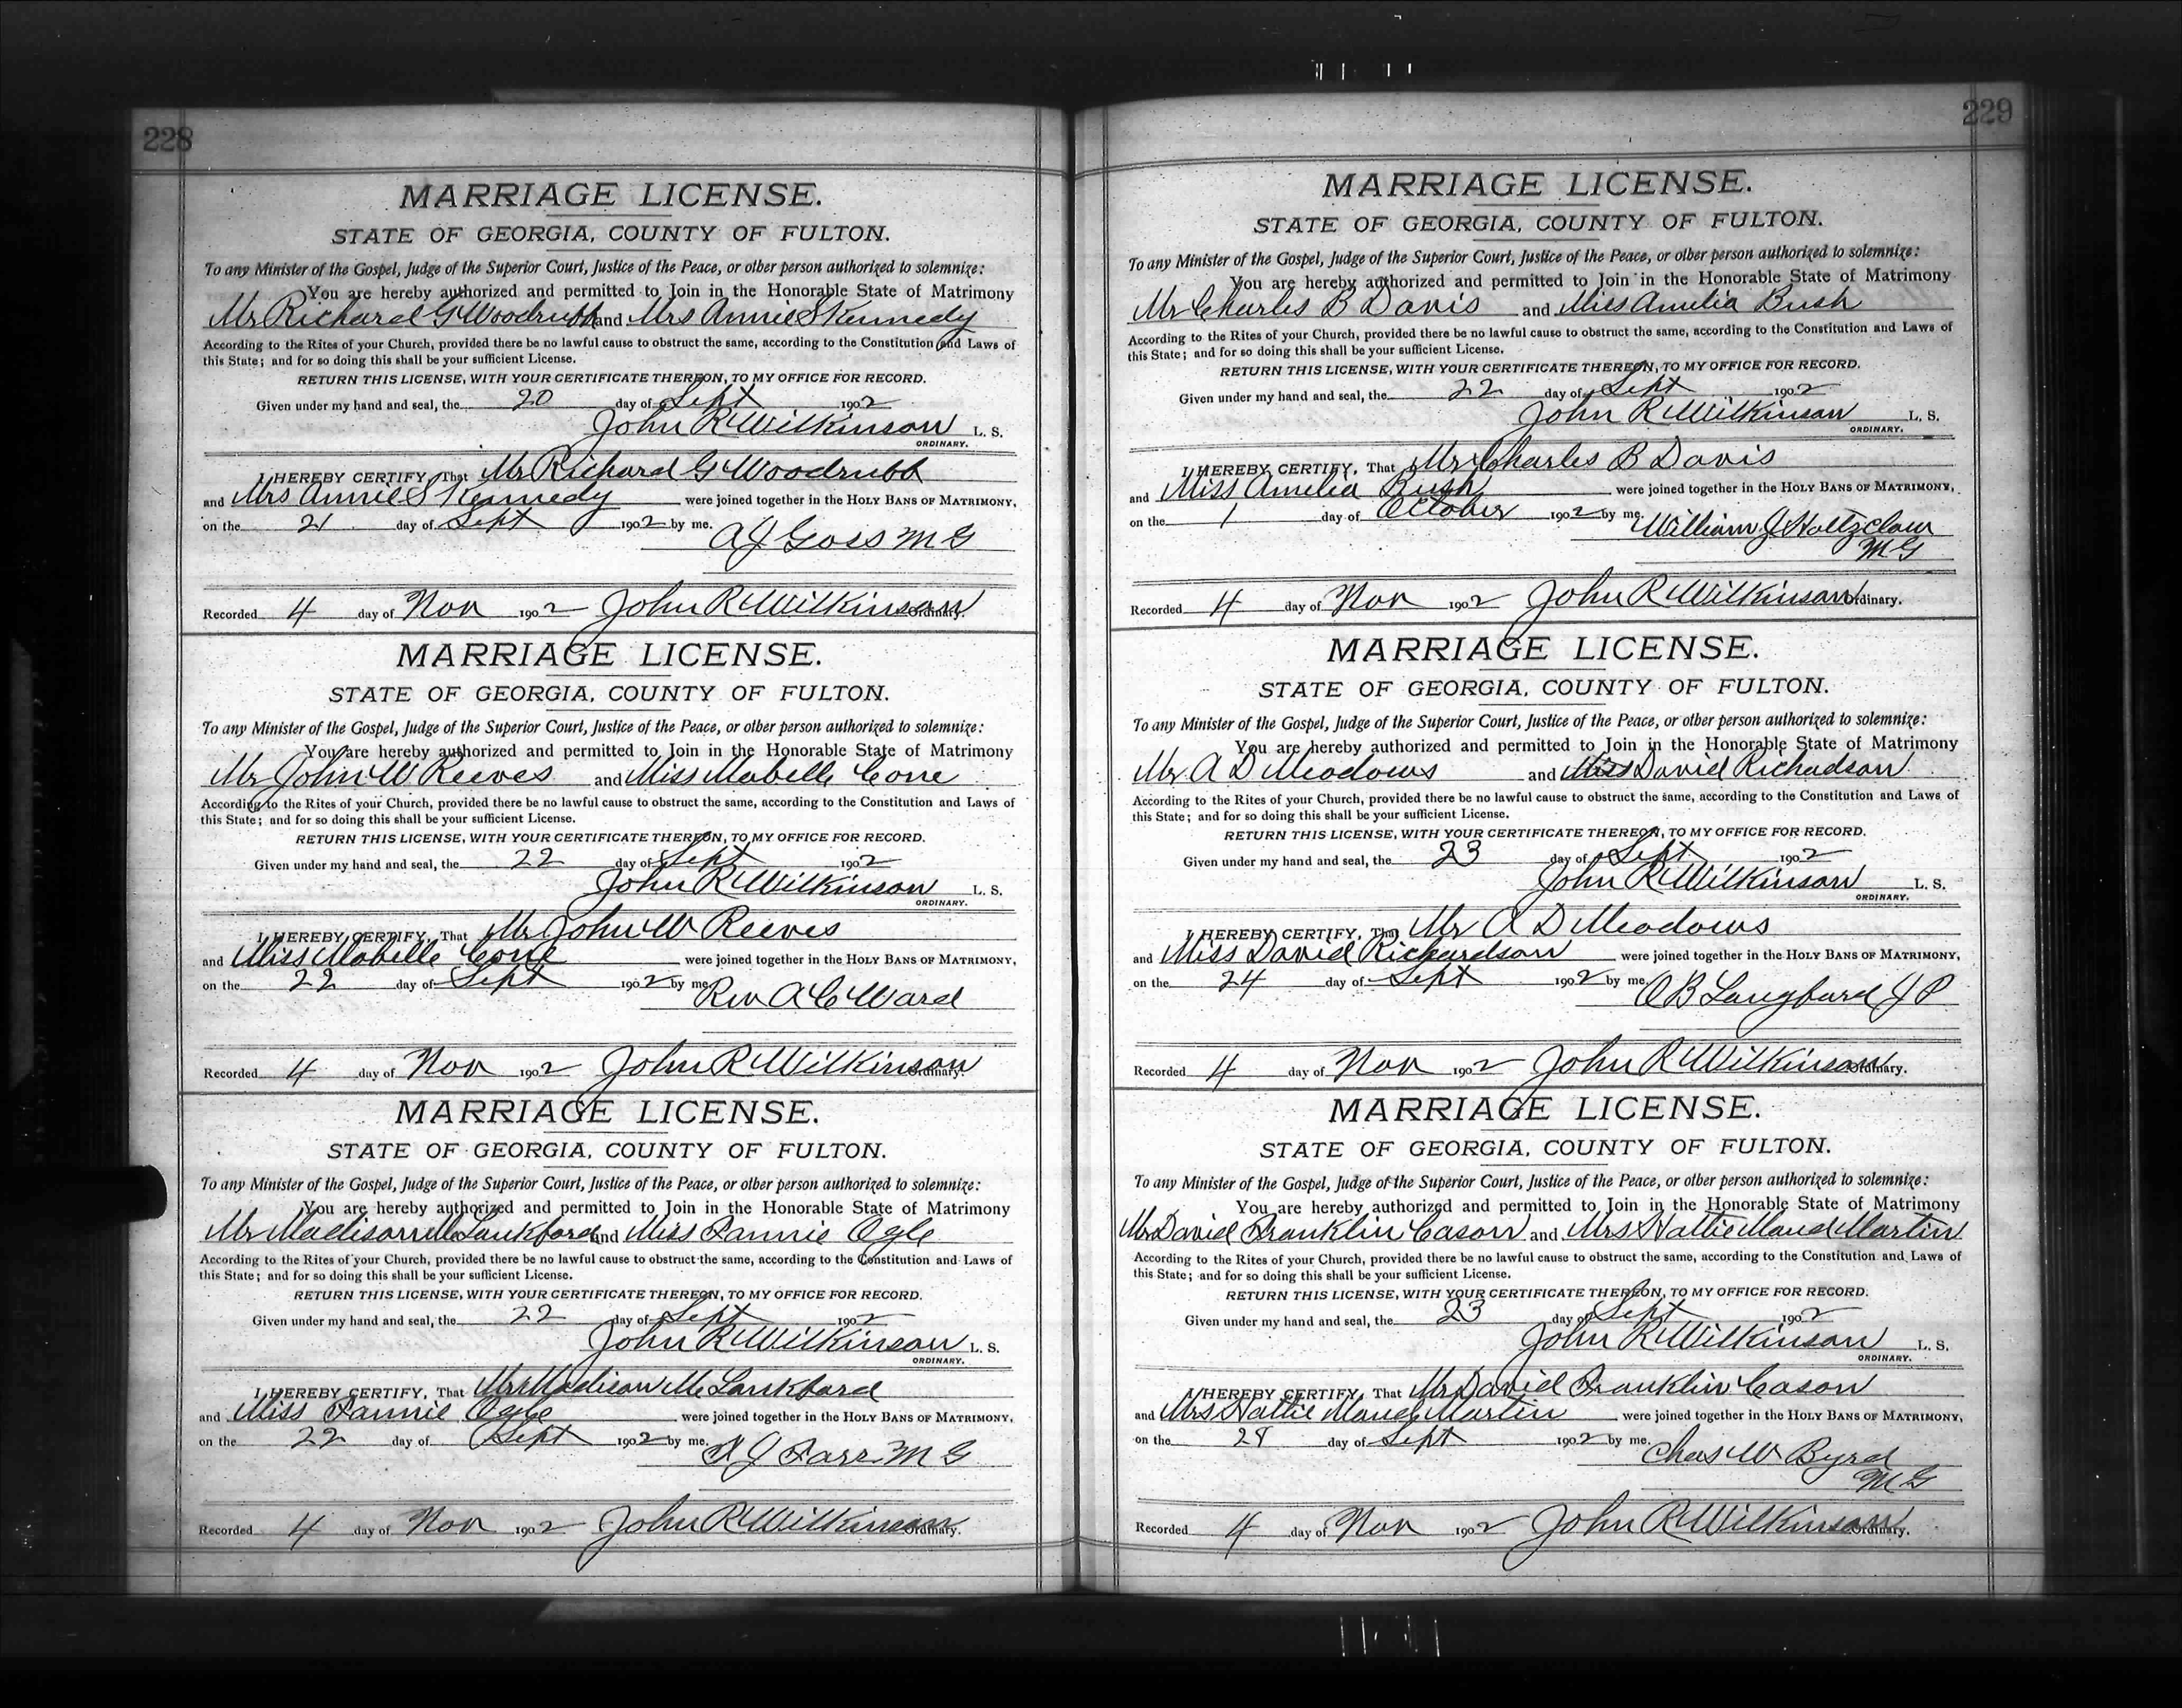 228
MARRIAGE LICENSE.
STATE OF GEORGIA, COUNTY OF FULTON.
To any Minister of the Gospel, Judge of the Superior Court, Justice of the Peace, or other person authorized to solemnize:
You are hereby authorized and permitted to Join in the Honorable State of Matrimony
Mr Richard G Woodrubb and Mrs Annie S Kennedy
According to the Rites of your Church, provided there be no lawful cause to obstruct the same, according to the Constitution and Laws of
this State; and for so doing this shall be your sufficient License.
RETURN THIS LICENSE, WITH YOUR CERTIFICATE THEREON, TO MY OFFICE FOR RECORD.
Given under my hand and seal, the 20 day of Sept 1902
John R Wilkinson L. S.
ORDINARY.
I HEREBY CERTIFY, That Mr Richard G Woodrubb
and Mrs Annie S Kennedy were joined together in the HOLY BANS OF MATRIMONY,
on the 21 day of Sept 1902 by me.
A J Goss M G
Recorded 4 day of Nov 1902 John R Wilkinson Ordinary.
MARRIAGE LICENSE.
STATE OF GEORGIA, COUNTY OF FULTON.
To any Minister of the Gospel, Judge of the Superior Court, Justice of the Peace, or other person authorized to solemnize:
You are hereby authorized and permitted to Join in the Honorable State of Matrimony
Mr John W Reeves and Miss Mabelle Cone
According to the Rites of your Church, provided there be no lawful cause to obstruct the same, according to the Constitution and Laws of
this State; and for so doing this shall be your sufficient License.
RETURN THIS LICENSE, WITH YOUR CERTIFICATE THEREON, TO MY OFFICE FOR RECORD.
Given under my hand and seal, the 22 day of Sept 1902
John R Wilkinson L. S.
ORDINARY.
I HEREBY CERTIFY, That Mr John W Reeves
and Miss Mabelle Cone were joined together in the HOLY BANS OF MATRIMONY,
on the 22 day of Sept 1902 by me.
Rev A C Ward
Recorded 4 day of Nov 1902 John R Wilkinson Ordinary.
MARRIAGE LICENSE.
STATE OF GEORGIA, COUNTY OF FULTON.
To any Minister of the Gospel, Judge of the Superior Court, Justice of the Peace, or other person authorized to solemnize:
You are hereby authorized and permitted to Join in the Honorable State of Matrimony
Mr Madison M Lankford and Miss Fannie Ogle
According to the Rites of your Church, provided there be no lawful cause to obstruct the same, according to the Constitution and Laws of
this State; and for so doing this shall be your sufficient License.
RETURN THIS LICENSE, WITH YOUR CERTIFICATE THEREON, TO MY OFFICE FOR RECORD.
Given under my hand and seal, the 22 day of Sept 1902
John R Wilkinson L. S.
ORDINARY.
I HEREBY CERTIFY, That Mr Madison M Lankford
and Miss Fannie Ogle were joined together in the HOLY BANS OF MATRIMONY,
on the 22 day of Sept 1902 by me.
J Farr M G
Recorded 4 day of Nov 1902 John R Wilkinson Ordinary.
229
MARRIAGE LICENSE.
STATE OF GEORGIA, COUNTY OF FULTON.
To any Minister of the Gospel, Judge of the Superior Court, Justice of the Peace, or other person authorized to solemnize:
You are hereby authorized and permitted to Join in the Honorable State of Matrimony
Mr Charles B Davis and Miss Amelia Bush
According to the Rites of your Church, provided there be no lawful cause to obstruct the same, according to the Constitution and Laws of
this State; and for so doing this shall be your sufficient License.
RETURN THIS LICENSE, WITH YOUR CERTIFICATE THEREON, TO MY OFFICE FOR RECORD.
Given under my hand and seal, the 22 day of Sept 1902
John R Wilkinson L. S.
ORDINARY.
I HEREBY CERTIFY, That Mr Charles B Davis
and Miss Amelia Bush were joined together in the HOLY BANS OF MATRIMONY,
on the 1 day of October 1902 by me.
William J Holtzclaw
M G
Recorded 4 day of Nov 1902 John R Wilkinson Ordinary.
MARRIAGE LICENSE.
STATE OF GEORGIA, COUNTY OF FULTON.
To any Minister of the Gospel, Judge of the Superior Court, Justice of the Peace, or other person authorized to solemnize:
You are hereby authorized and permitted to Join in the Honorable State of Matrimony
Mr. A D Meadows and Miss David Richardson
According to the Rites of your Church, provided there be no lawful cause to obstruct the same, according to the Constitution and Laws of
this State; and for so doing this shall be your sufficient License.
RETURN THIS LICENSE, WITH YOUR CERTIFICATE THEREON, TO MY OFFICE FOR RECORD.
Given under my hand and seal, the 23 day of Sept 1902
John R Wilkinson L. S.
ORDINARY.
I HEREBY CERTIFY, That Mr A D Meadows
and Miss David Richardson were joined together in the HOLY BANS OF MATRIMONY,
on the 24 day of Sept 1902 by me.
O B Langford J P
Recorded 4 day of Nov 1902 John R Wilkinson Ordinary.
MARRIAGE LICENSE.
STATE OF GEORGIA, COUNTY OF FULTON.
To any Minister of the Gospel, Judge of the Superior Court, Justice of the Peace, or other person authorized to solemnize:
You are hereby authorized and permitted to Join in the Honorable State of Matrimony
Mr David Franklin Cason and Mrs Hattie Maud Martin
According to the Rites of your Church, provided there be no lawful cause to obstruct the same, according to the Constitution and Laws of
this State; and for so doing this shall be your sufficient License.
RETURN THIS LICENSE, WITH YOUR CERTIFICATE THEREON, TO MY OFFICE FOR RECORD.
Given under my hand and seal, the 23 day of Sept 1902
John R Wilkinson L. S.
ORDINARY.
I HEREBY CERTIFY, That Mr David Franklin Cason
and Mrs Hattie Maud Martin were joined together in the HOLY BANS OF MATRIMONY,
on the 28 day of Sept 1902 by me.
Chas W Byrd
M G
Recorded 4 day of Nov 1902 John R Wilkinson Ordinary.